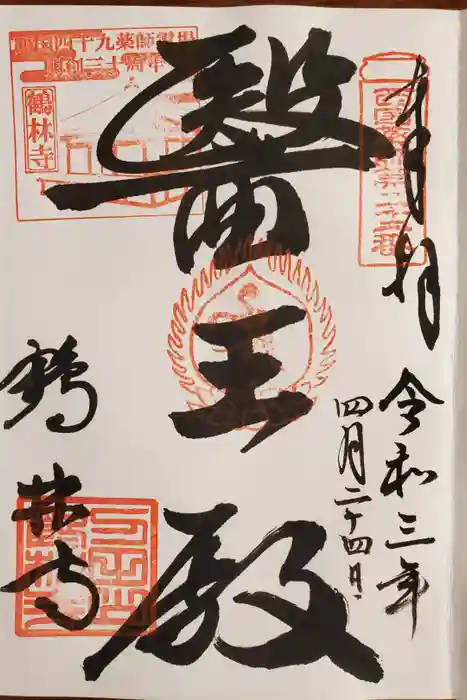 奉拝
令和三年
四月二十四日
醫王殿
鶴林寺
西国四十九薬師霊場
鶴林寺